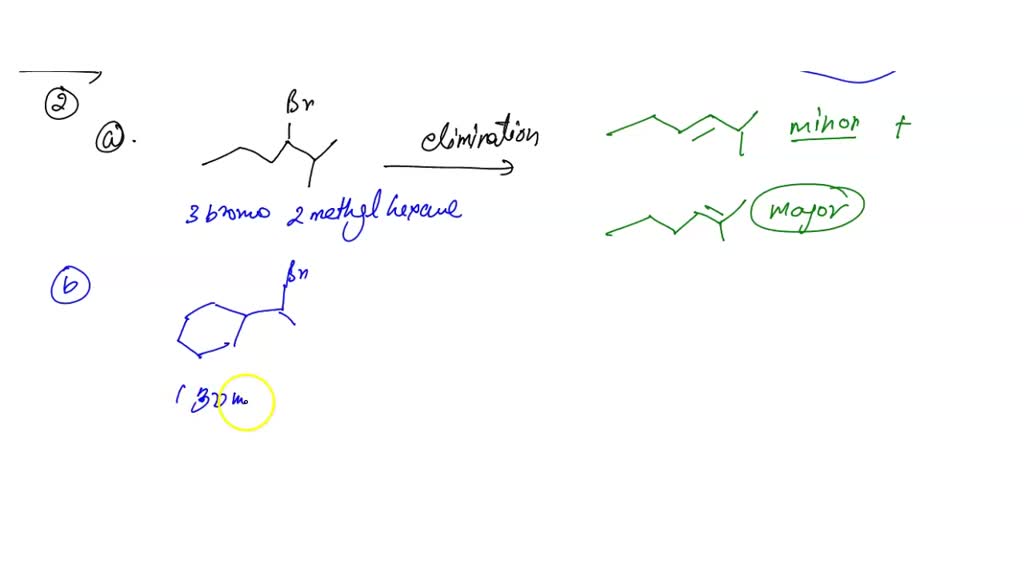 2
a.
Br
elimination
minor +
3 bromo 2 methyl hexane
major
b
Br